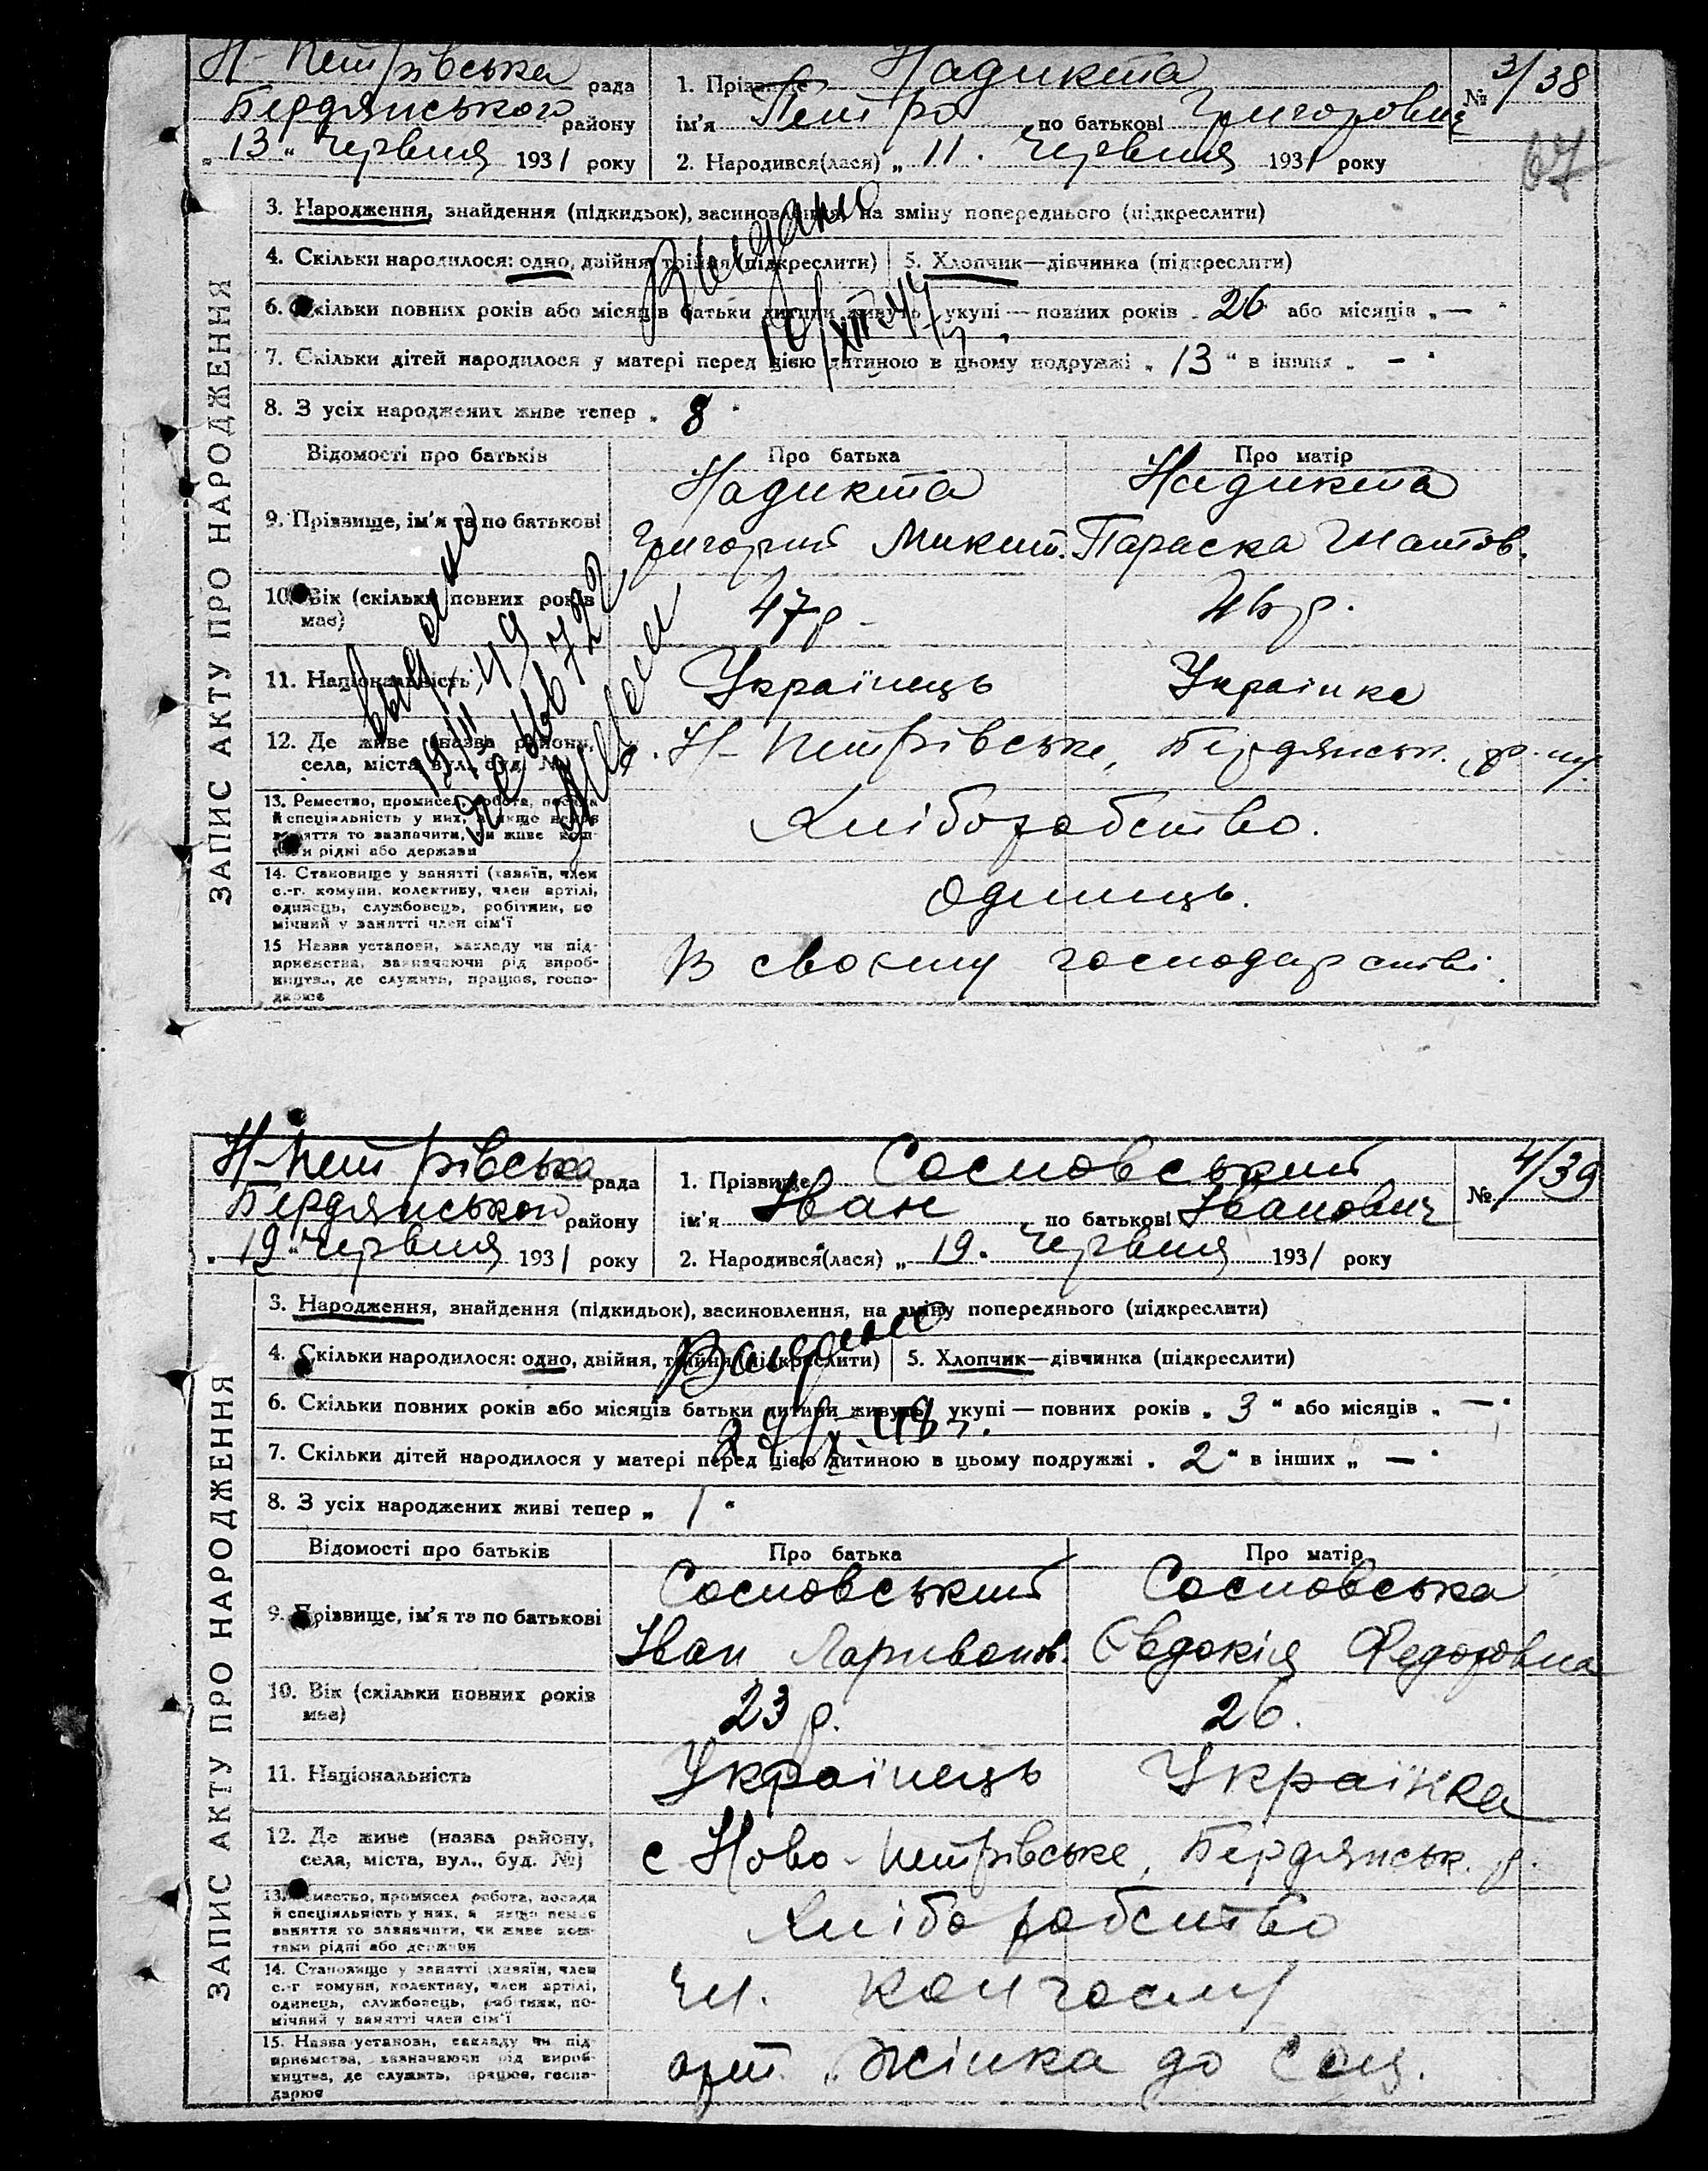 Н-Петрівська рада
Бердянського району
„13“ червня 1931 року
1. Прізвище Надикта
ім'я Петро по батькові Григорович
2. Народився(лася) „11. червня 1931 року
№ 3/38
67
ЗАПИС АКТУ ПРО НАРОДЖЕННЯ
3. Народження, знайдення (підкидьок), засиновлення, на зміну попереднього (підкреслити)
4. Скільки народилося: одно, двійня, трійня (підкреслити)
5. Хлопчик—дівчинка (підкреслити)
6. Скільки повних років або місяців батьки дитини живуть укупі — повних років „26 або місяців „—
7. Скільки дітей народилося у матері перед цією дитиною в цьому подружжі „13“ в інших „—“
8. З усіх народжених живе тепер „8“
Відомості про батьків Про батька Про матір
9. Прізвище, ім'я та по батькові
Надикта Надикта
Григорий Микит. Параска
10. Вік (скільки повних років має)
47 р. 46 р.
11. Національність Українець Українка
12. Де живе (назва району, села, міста, вул., буд. №)
с. Н-Петрівське, Бердянськ. р-ну.
13. Ремество, промисел, робота, посада
й спеціяльність у них, а якщо немає
заняття то зазначити, чи живе кош-
тами рідні або держави
Хліборобство.
14. Становище у занятті (хазяїн, член
с.-г. комуни, колективу, член артілі,
одинець, службовець, робітник, по
мічний у занятті член сім'ї
Одинець.
15 Назва установи, закладу чи під-
приємства, зазначаючи рід вироб-
ництва, де служить, працює, госпо-
дарює
В своєму господарстві.
Выдано
10/XII 47 г.
Н-Петрівська рада
Бердянського району
„19“ червня 1931 року
1. Прізвище Сосновський
ім'я Іван по батькові Іванович
2. Народився(лася) „19. червня 1931 року
№ 4/39
ЗАПИС АКТУ ПРО НАРОДЖЕННЯ
3. Народження, знайдення (підкидьок), засиновлення, на зміну попереднього (підкреслити)
4. Скільки народилося: одно, двійня, трійня (підкреслити)
5. Хлопчик—дівчинка (підкреслити)
6. Скільки повних років або місяців батьки дитини живуть укупі — повних років „3“ або місяців „—“
7. Скільки дітей народилося у матері перед цією дитиною в цьому подружжі „2“ в інших „—“
8. З усіх народжених живі тепер „1“
Выдано
Відомості про батьків Про батька Про матір
9. Прізвище, ім'я та по батькові
Сосновський Сосновська
Іван Ларивонов. Євдокія Федоровна
10. Вік (скільки повних років має)
23 р. 26.
11. Національність Українець Українка
12. Де живе (назва району, села, міста, вул., буд. №)
с Ново-Петрівське, Бердянськ. р.
13. Ремество, промисел робота, посада
й спеціяльність у них, а якщо немає
заняття то зазначити, чи живе кош-
тами рідні або держави
Хліборобство
14. Становище у занятті (хазяїн, член
с.-г комуни, колективу, член артілі,
одинець, службовець, робітник, по-
мічний у занятті член сім'ї
Чл. колгоспу
15. Назва установи, закладу чи під-
приємства, зазначаючи рід вироб-
ництва, де служить, працює, госпо-
дарює
арт. „Жінка до Соц.